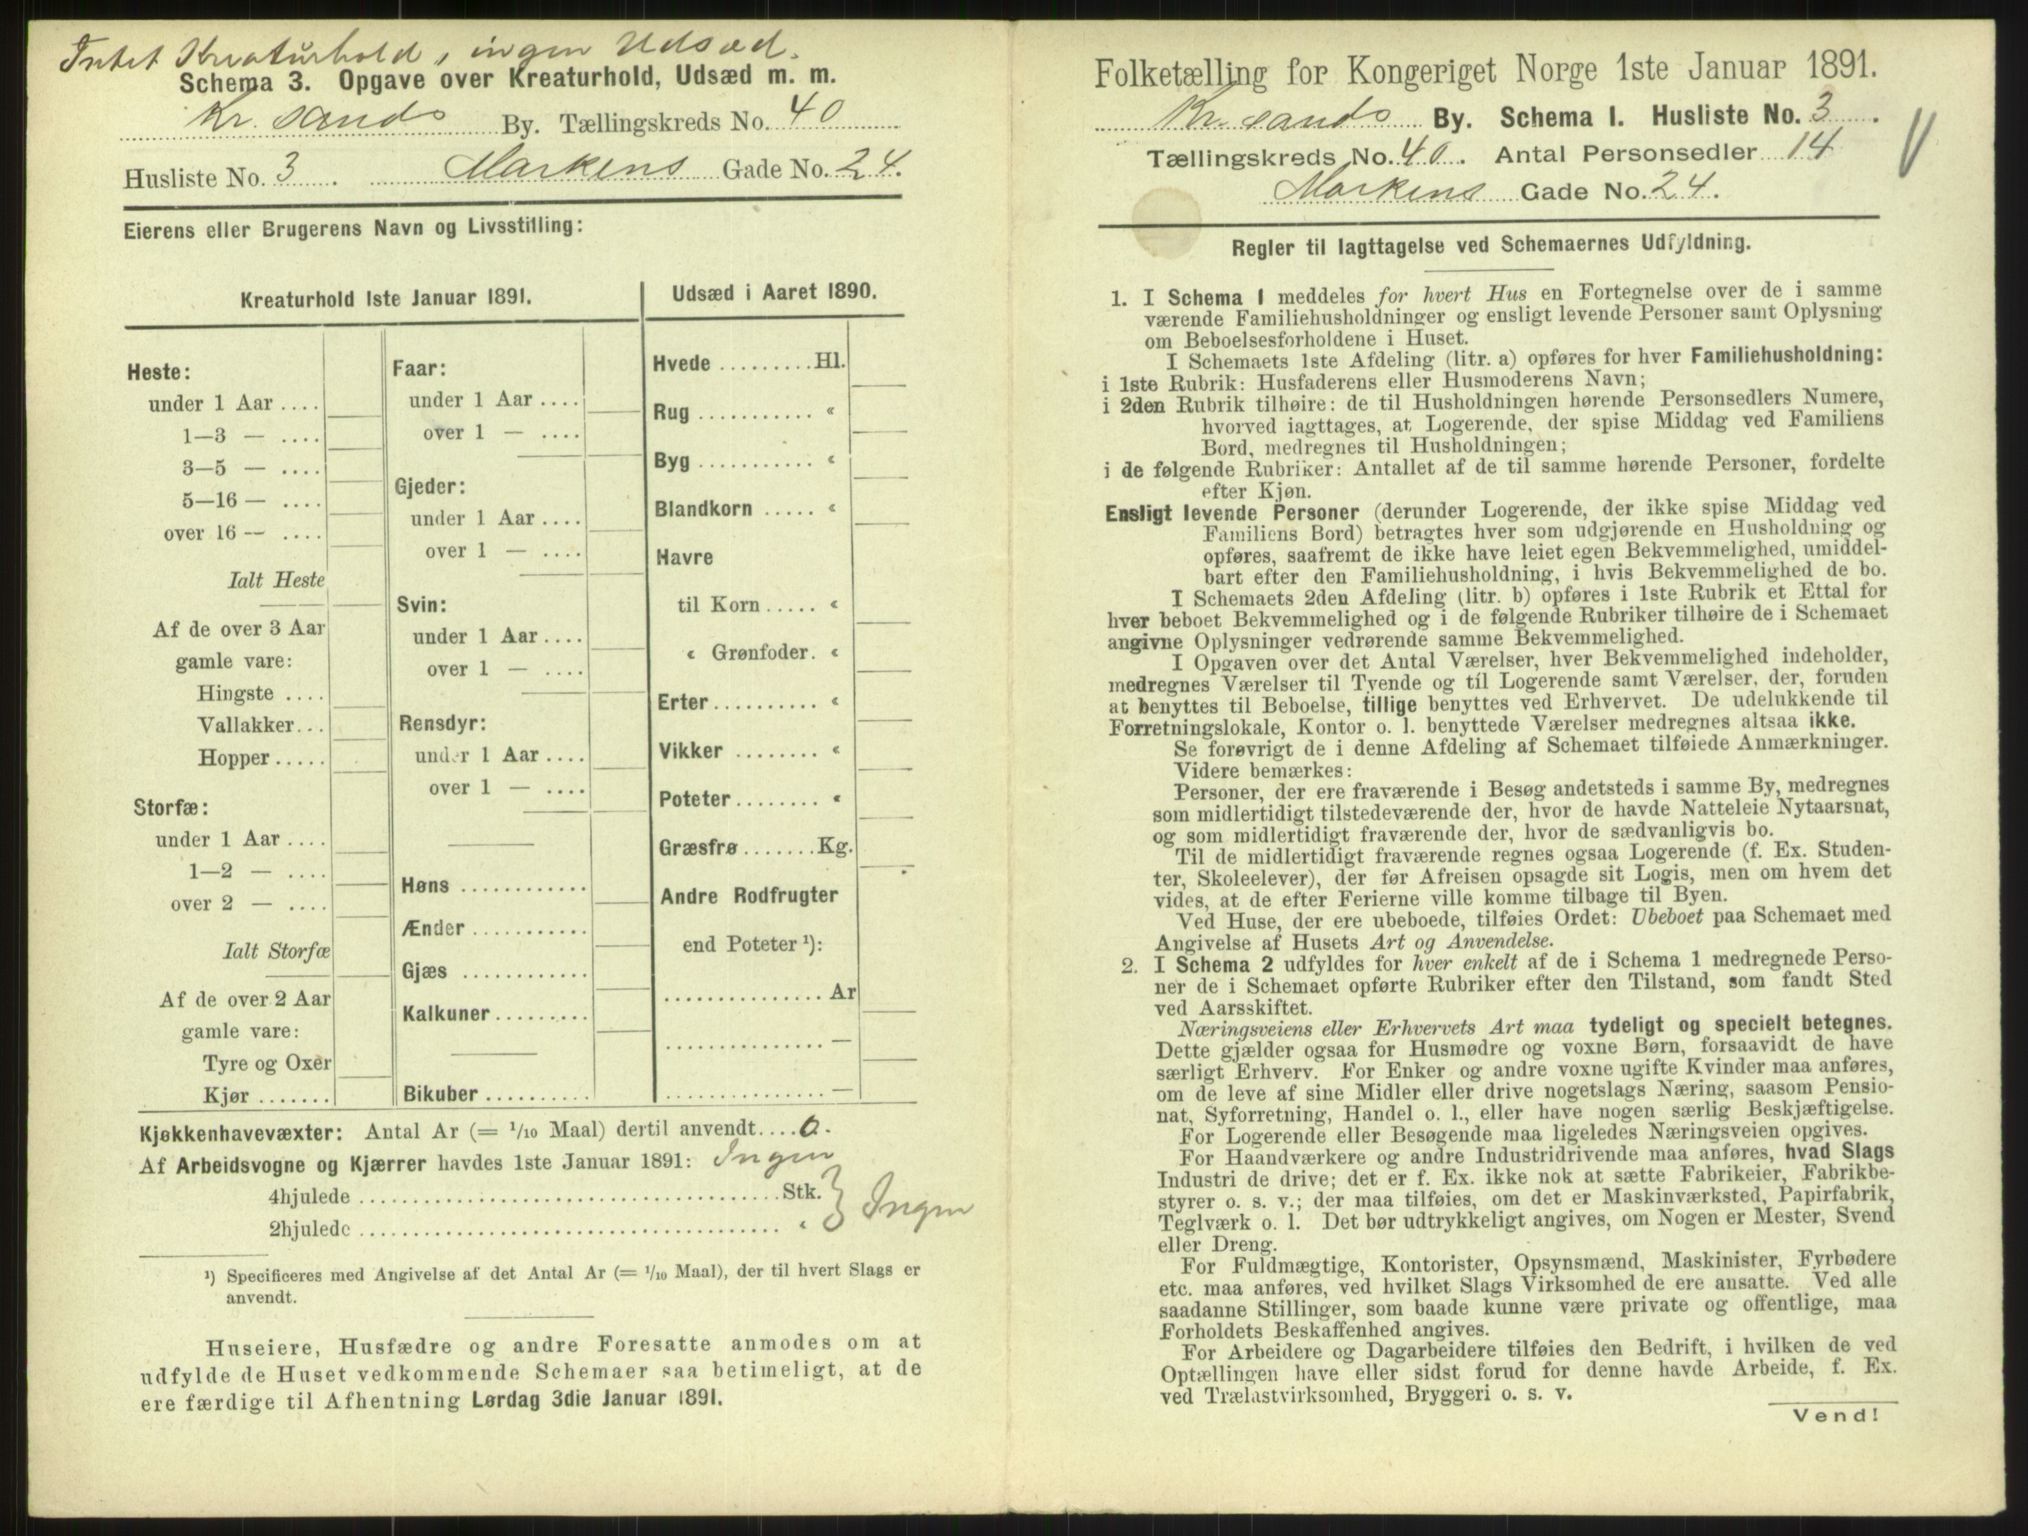 Intet Kreaturhold, ingen Udsæd.
Schema 3. Opgave over Kreaturhold, Udsæd m. m.
Kr. sands By. Tællingskreds No. 40
Husliste No. 3. Markens Gade No. 24.
Eierens eller Brugerens Navn og Livsstilling:
Kreaturhold 1ste Januar 1891.
Heste:
under 1 Aar ....
1—3 — ....
3—5 — ....
5—16 — ....
over 16 — ....
Ialt Heste
Af de over 3 Aar
gamle vare:
Hingste ....
Vallakker...
Hopper.....
Storfæ:
under 1 Aar ....
1—2 — ....
over 2 — ....
Ialt Storfæ
Af de over 2 Aar
gamle vare:
Tyre og Oxer
Kjør .......
Faar:
under 1 Aar ....
over 1 — ....
Gjeder:
under 1 Aar ....
over 1 — ....
Svin:
under 1 Aar ....
over 1 — ....
Rensdyr:
under 1 Aar ....
over 1 — ....
Høns ............
Ænder ...........
Gjæs ............
Kalkuner.........
Bikuber ..........
Udsæd i Aaret 1890.
Hvede .........Hl.
Rug ........... "
Byg ........... "
Blandkorn ..... "
Havre
til Korn ..... "
" Grønfoder. "
Erter.......... "
Vikker ........ "
Poteter........ "
Græsfrø .......Kg.
Andre Rodfrugter
end Poteter ¹):
............... Ar
............... —
............... —
Kjøkkenhavevæxter: Antal Ar (= 1/10 Maal) dertil anvendt....0.
Af Arbeidsvogne og Kjærrer havdes 1ste Januar 1891: Ingen
4hjulede ........................................Stk. } Ingen
2hjulede ........................................ "
¹) Specificeres med Angivelse af det Antal Ar (= 1/10 Maal), der til hvert Slags er
anvendt.
Huseiere, Husfædre og andre Foresatte anmodes om at
udfylde de Huset vedkommende Schemaer saa betimeligt, at de
ere færdige til Afhentning Lørdag 3die Januar 1891.
Folketælling for Kongeriget Norge 1ste Januar 1891.
Kr. sands By. Schema I. Husliste No. 3.
Tællingskreds No. 40. Antal Personsedler 14
Markens Gade No. 24.
Regler til Iagttagelse ved Schemaernes Udfyldning.
1. I Schema I meddeles for hvert Hus en Fortegnelse over de i samme
værende Familiehusholdninger og ensligt levende Personer samt Oplysning
om Beboelsesforholdene i Huset.
I Schemaets 1ste Afdeling (litr. a) opføres for hver Familiehusholdning:
i 1ste Rubrik: Husfaderens eller Husmoderens Navn;
i 2den Rubrik tilhøire: de til Husholdningen hørende Personsedlers Numere,
hvorved iagttages, at Logerende, der spise Middag ved Familiens
Bord, medregnes til Husholdningen;
i de følgende Rubriker: Antallet af de til samme hørende Personer, fordelte
efter Kjøn.
Ensligt levende Personer (derunder Logerende, der ikke spise Middag ved
Familiens Bord) betragtes hver som udgjørende en Husholdning og
opføres, saafremt de ikke have leiet egen Bekvemmelighed, umiddel-
bart efter den Familiehusholdning, i hvis Bekvemmelighed de bo.
I Schemaets 2den Afdeling (litr. b) opføres i 1ste Rubrik et Ettal for
hver beboet Bekvemmelighed og i de følgende Rubriker tilhøire de i Schemaet
angivne Oplysninger vedrørende samme Bekvemmelighed.
I Opgaven over det Antal Værelser, hver Bekvemmelighed indeholder,
medregnes Værelser til Tyende og til Logerende samt Værelser, der, foruden
at benyttes til Beboelse, tillige benyttes ved Erhvervet. De udelukkende til
Forretningslokale, Kontor o. l. benyttede Værelser medregnes altsaa ikke.
Se forøvrigt de i denne Afdeling af Schemaet tilføiede Anmærkninger.
Videre bemærkes:
Personer, der ere fraværende i Besøg andetsteds i samme By, medregnes
som midlertidigt tilstedeværende der, hvor de havde Natteleie Nytaarsnat,
og som midlertidigt fraværende der, hvor de sædvanligvis bo.
Til de midlertidigt fraværende regnes ogsaa Logerende (f. Ex. Studen-
ter, Skoleelever), der før Afreisen opsagde sit Logis, men om hvem det
vides, at de efter Ferierne ville komme tilbage til Byen.
Ved Huse, der ere ubeboede, tilføies Ordet: Ubeboet paa Schemaet med
Angivelse af Husets Art og Anvendelse.
2. I Schema 2 udfyldes for hver enkelt af de i Schema 1 medregnede Perso-
ner de i Schemaet opførte Rubriker efter den Tilstand, som fandt Sted
ved Aarsskiftet.
Næringsveiens eller Erhvervets Art maa tydeligt og specielt betegnes.
Dette gjælder ogsaa for Husmødre og voxne Børn, forsaavidt de have
særligt Erhverv. For Enker og andre voxne ugifte Kvinder maa anføres,
om de leve af sine Midler eller drive nogetslags Næring, saasom Pensio-
nat, Syforretning, Handel o. l., eller have nogen særlig Beskjæftigelse.
For Logerende eller Besøgende maa ligeledes Næringsveien opgives.
For Haandværkere og andre Industridrivende maa anføres, hvad Slags
Industri de drive; det er f. Ex. ikke nok at sætte Fabrikeier, Fabrikbe-
styrer o. s. v.; der maa tilføies, om det er Maskinværksted, Papirfabrik,
Teglværk o. l. Det bør udtrykkeligt angives, om Nogen er Mester, Svend
eller Dreng.
For Fuldmægtige, Kontorister, Opsynsmænd, Maskinister, Fyrbødere
etc. maa anføres, ved hvilket Slags Virksomhed de ere ansatte. Ved alle
saadanne Stillinger, som baade kunne være private og offentlige, maa
Forholdets Beskaffenhed angives.
For Arbeidere og Dagarbeidere tilføies den Bedrift, i hvilken de ved
Optællingen have eller sidst forud for denne havde Arbeide, f. Ex.
ved Trælastvirksomhed, Bryggeri o. s. v.
Vend!